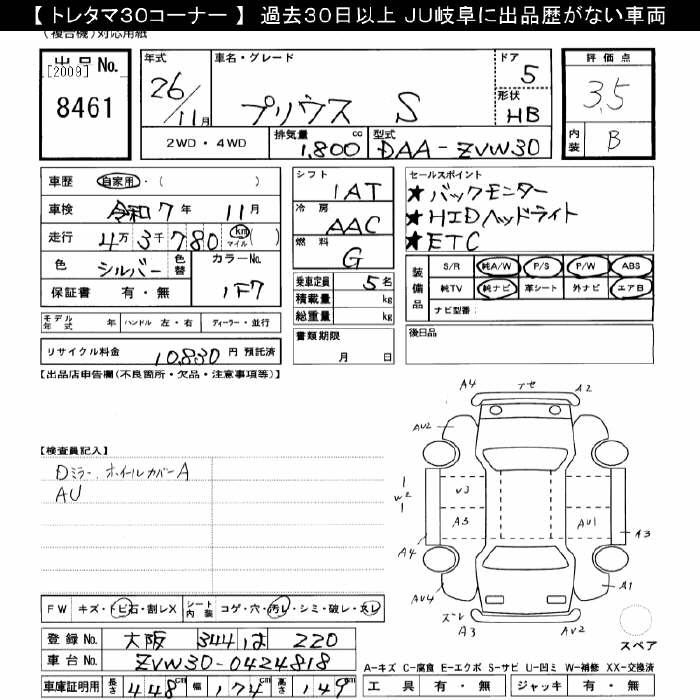 【 トレタマ30コーナー 】 過去30日以上 JU岐阜に出品歴がない車両
(複合機)対応用紙
出品 No.
[2009]
8461
年式
26/11月
車名・グレード
プリウス S
ドア
5
形状
HB
評価点
3.5
内装
B
2WD・4WD
排気量
1,800 cc
型式
DAA-ZVW30
車歴 自家用・( )
車検 令和7年 11月
走行 4万3千780 km マイル ( )
色 シルバー
色替
カラーNo.
1F7
保証書 有・無
モデル年式 年 ハンドル 左・右 ディーラー・並行
リサイクル料金 10,830 円 預託済
シフト
1AT
冷房
AAC
燃料
G
乗車定員 5名
積載量 kg
総重量 kg
書類期限
月 日
セールスポイント
★バックモニター
★HIDヘッドライト
★ETC
装備品
S/R 純A/W P/S P/W ABS
純TV 純ナビ 革シート 外ナビ エアB
ナビ型番:
後日品
【出品店申告欄(不良箇所・欠品・注意事項等)】
【検査員記入】
Dミラー、ホイールカバーA
AU
A4 A2
AU2
1
W2
1
U3
A3
AU1
A3
A4
AU4
A1
ズレ
A3
AU2
スペア
FW キズ・トビ石・割レX シート内装 コゲ・穴・汚レ・シミ・破レ・スレ
登録No. 大阪 344 は 220
車台No. ZVW30-0424818
車庫証明用 長さ 448 cm 幅 174 cm 高さ 149 cm
A-キズ C-腐食 E-エクボ S-サビ U-凹ミ W-補修 XX-交換済
工具 有・無 ジャッキ 有・無